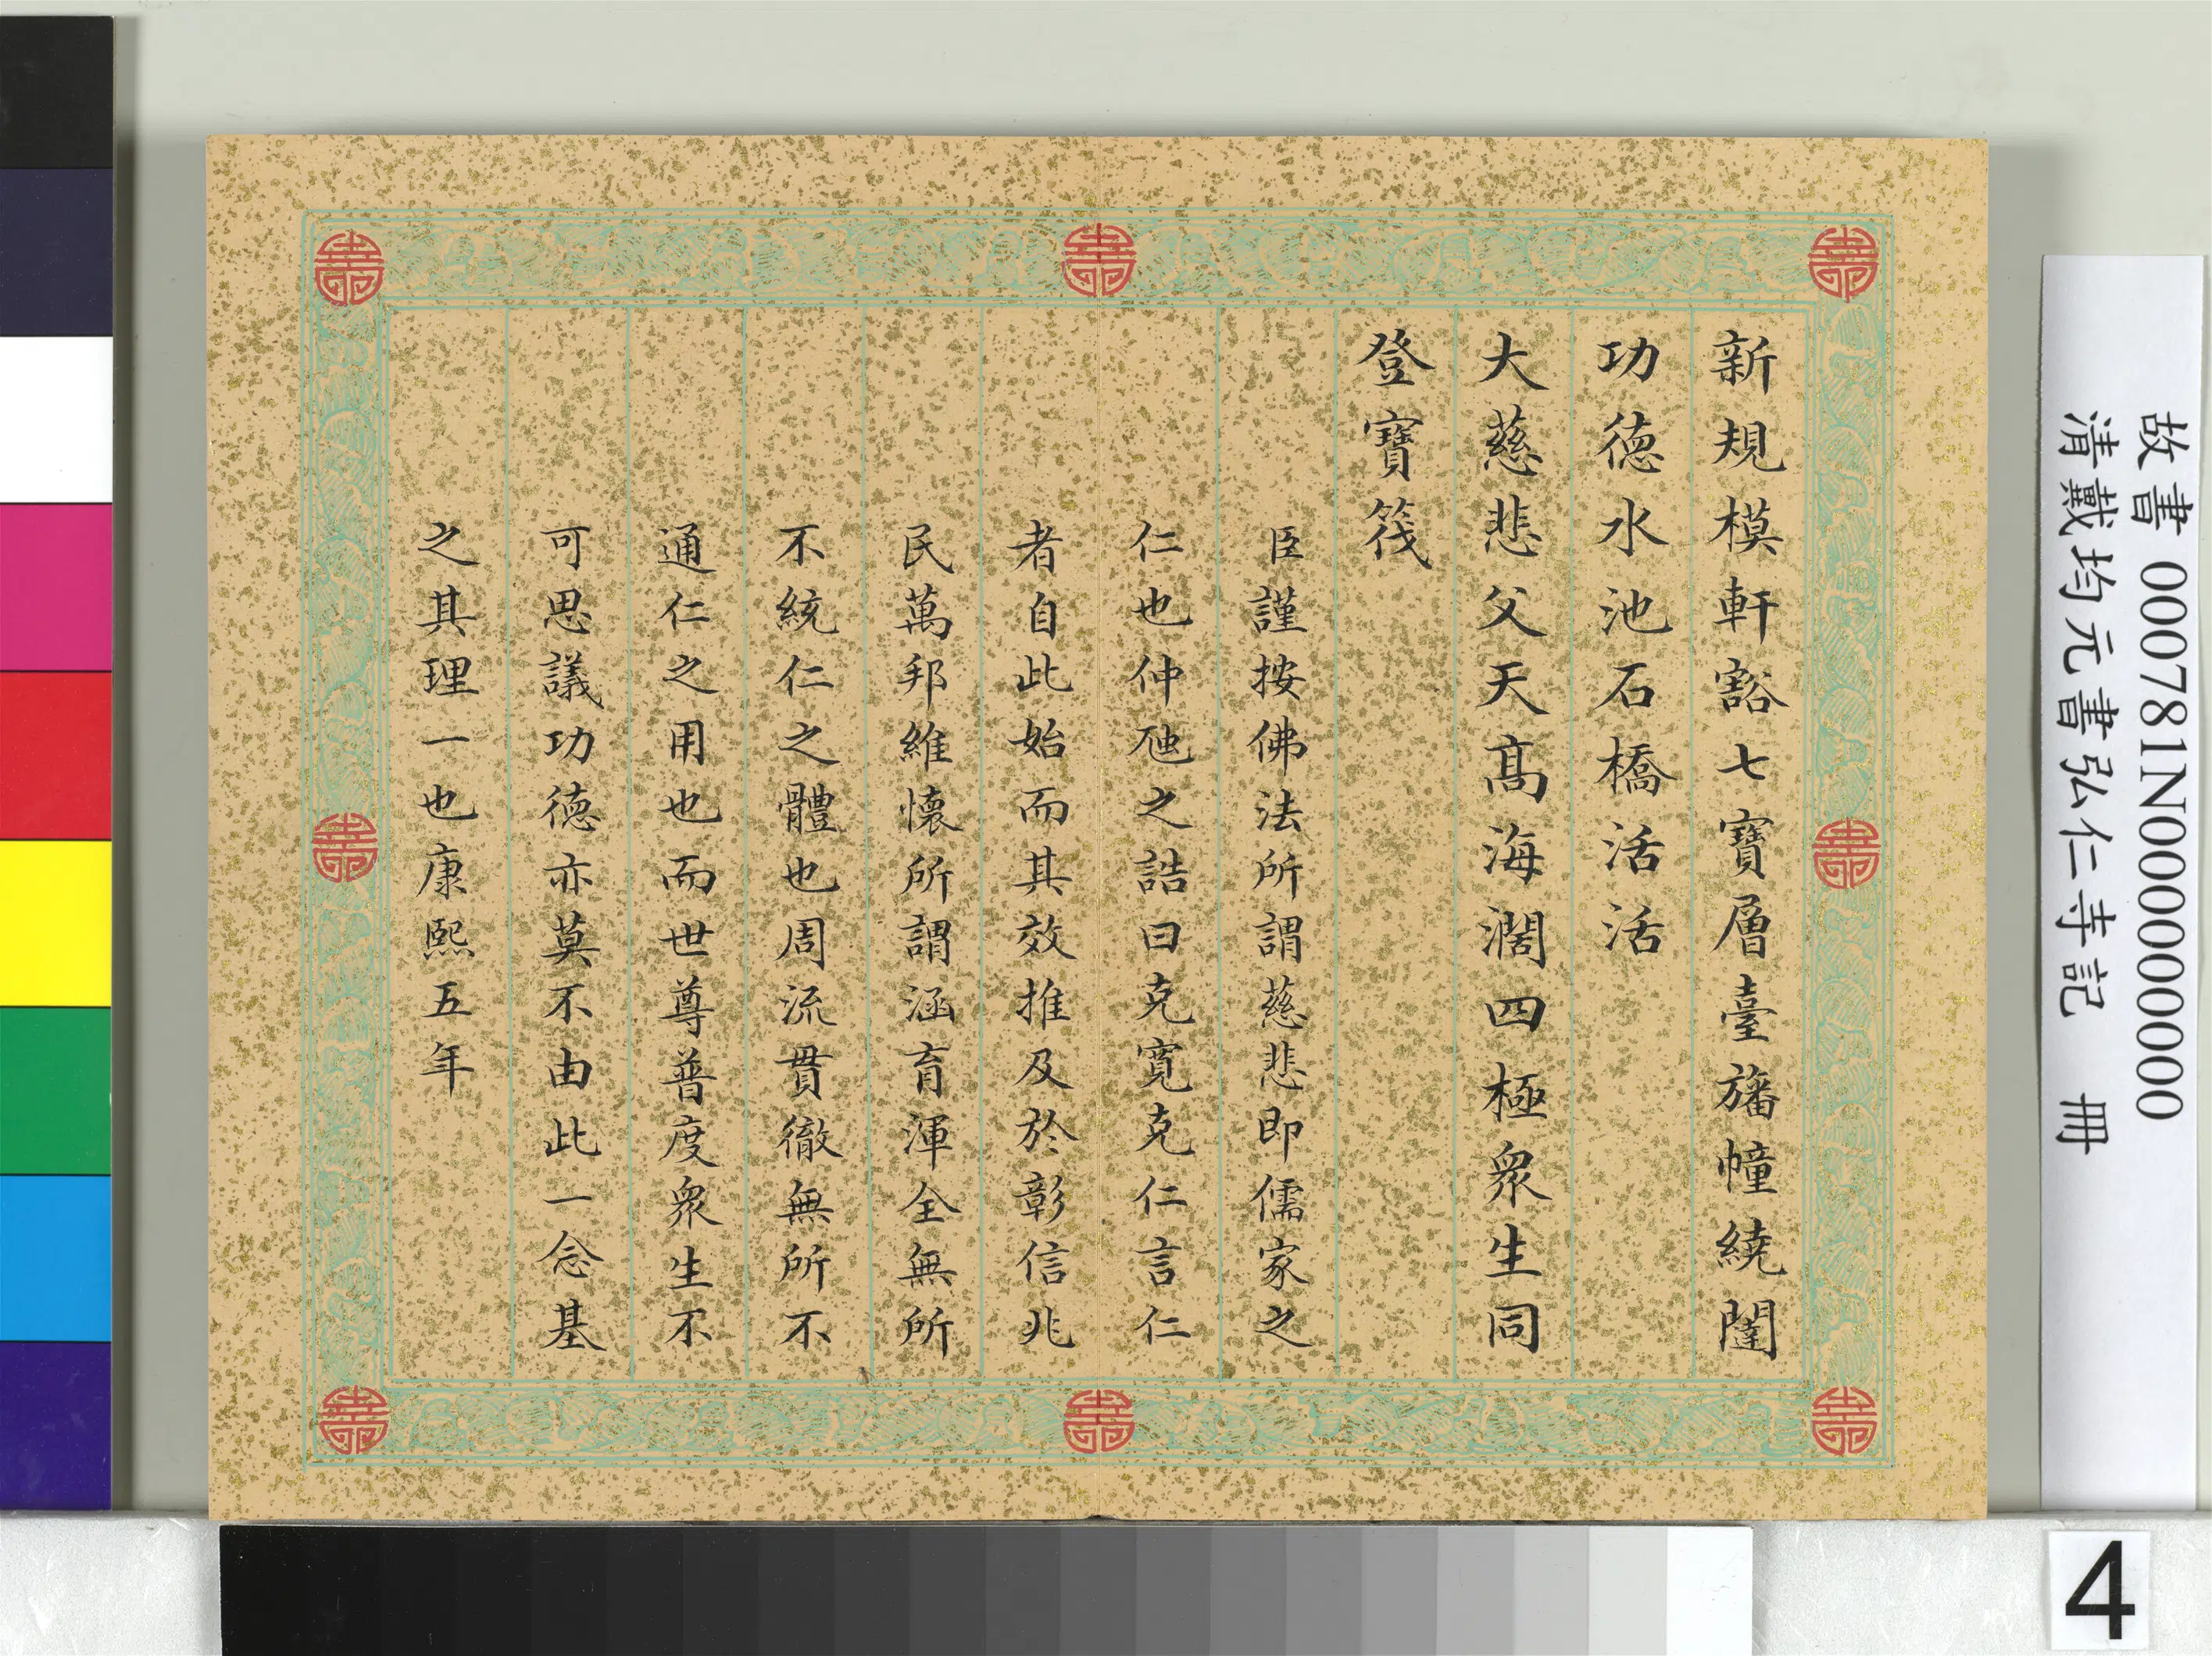 新規模軒豁七寶層臺旛幢繞闥
功德水池石橋活活
大慈悲父天高海濶四極衆生同
登寶筏
臣謹按佛法所謂慈悲即儒家之
仁也仲虺之誥曰克寬克仁言仁
者自此始而其效推及於彰信兆
民萬邦維懷所謂涵育渾全無所
不統仁之體也周流貫徹無所不
通仁之用也而世尊普度衆生不
可思議功德亦莫不由此一念基
之其理一也康熙五年
故書 000781N000000000
清戴均元書弘仁寺記 冊
4